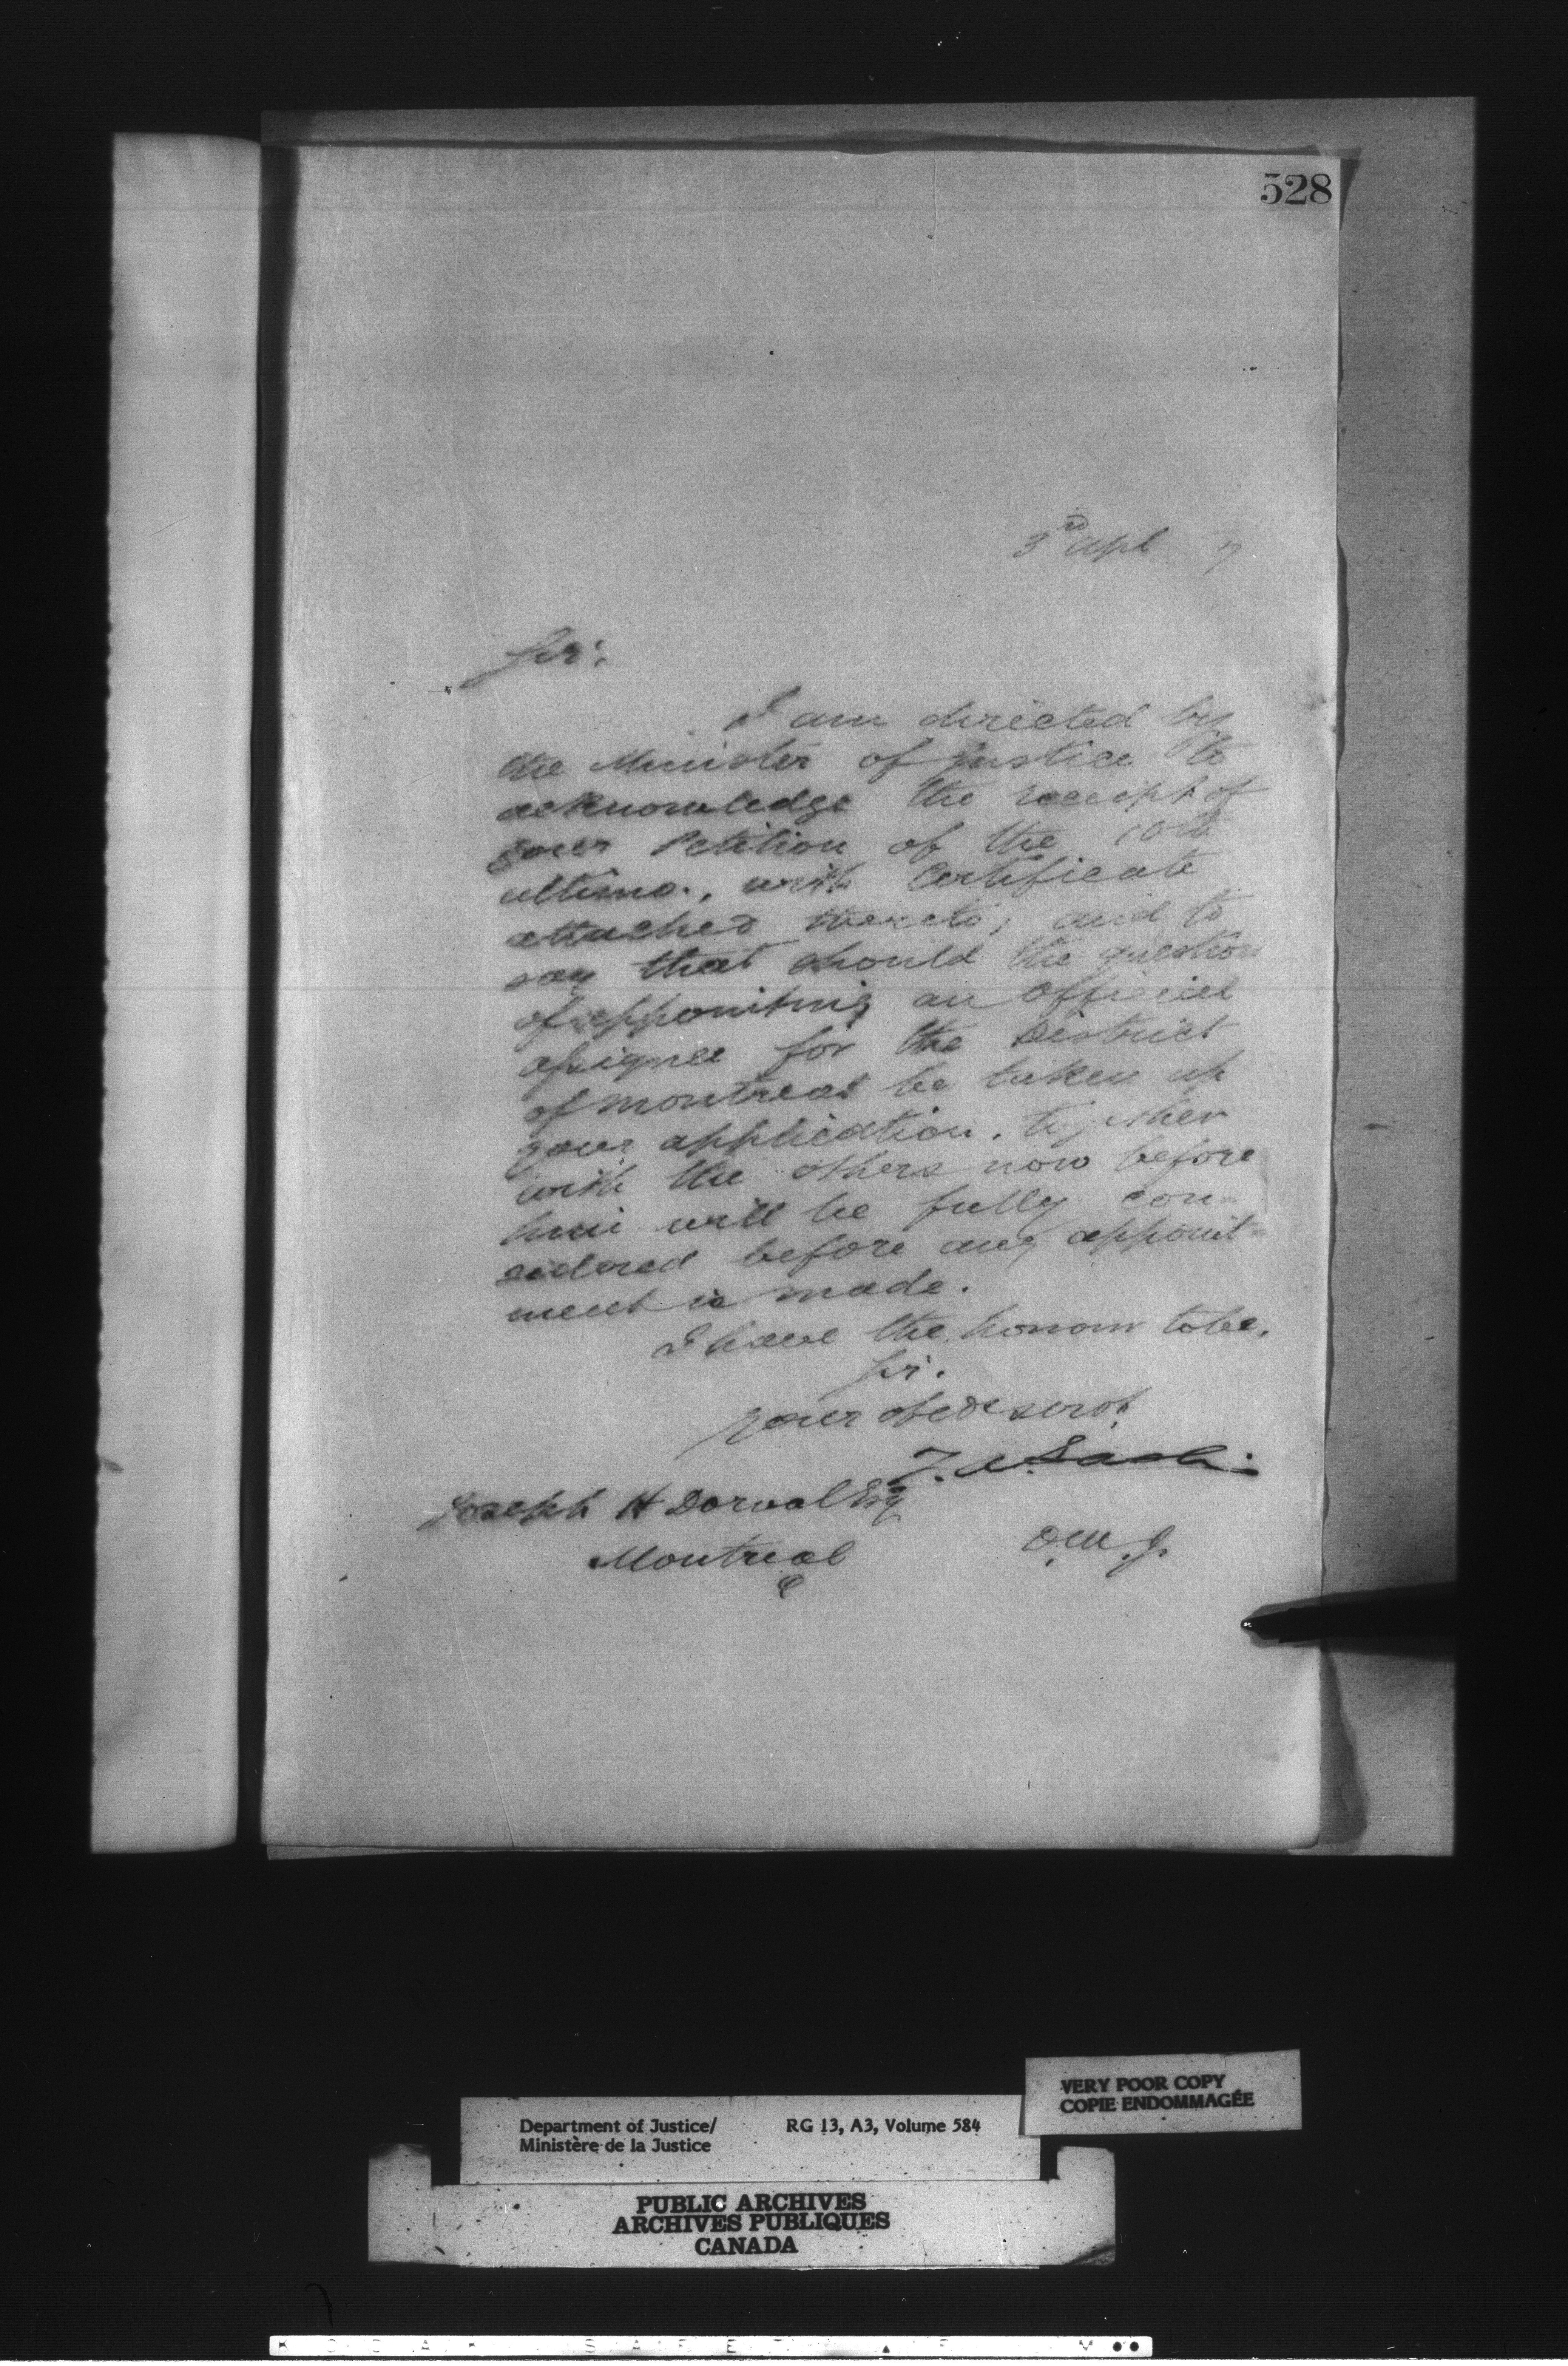 528
3rd Apl 7
Sir,
I am directed by
the Minister of Justice to
acknowledge the receipt of
your Petition of the 10th
ultimo., with Certificate
attached thereto; and to
say that should the question
of appointing an Official
assignee for the District
of Montreal be taken up
your application, together
with the others now before
him will be fully con=
sidered before any appoint=
ment is made.
I have the honour to be,
Sir.
Your obedt servt
Joseph H Dorval Esq
Montreal
D.M.J.
VERY POOR COPY
COPIE ENDOMMAGÉE
Department of Justice/ RG 13, A3, Volume 584
Ministère de la Justice
PUBLIC ARCHIVES
ARCHIVES PUBLIQUES
CANADA